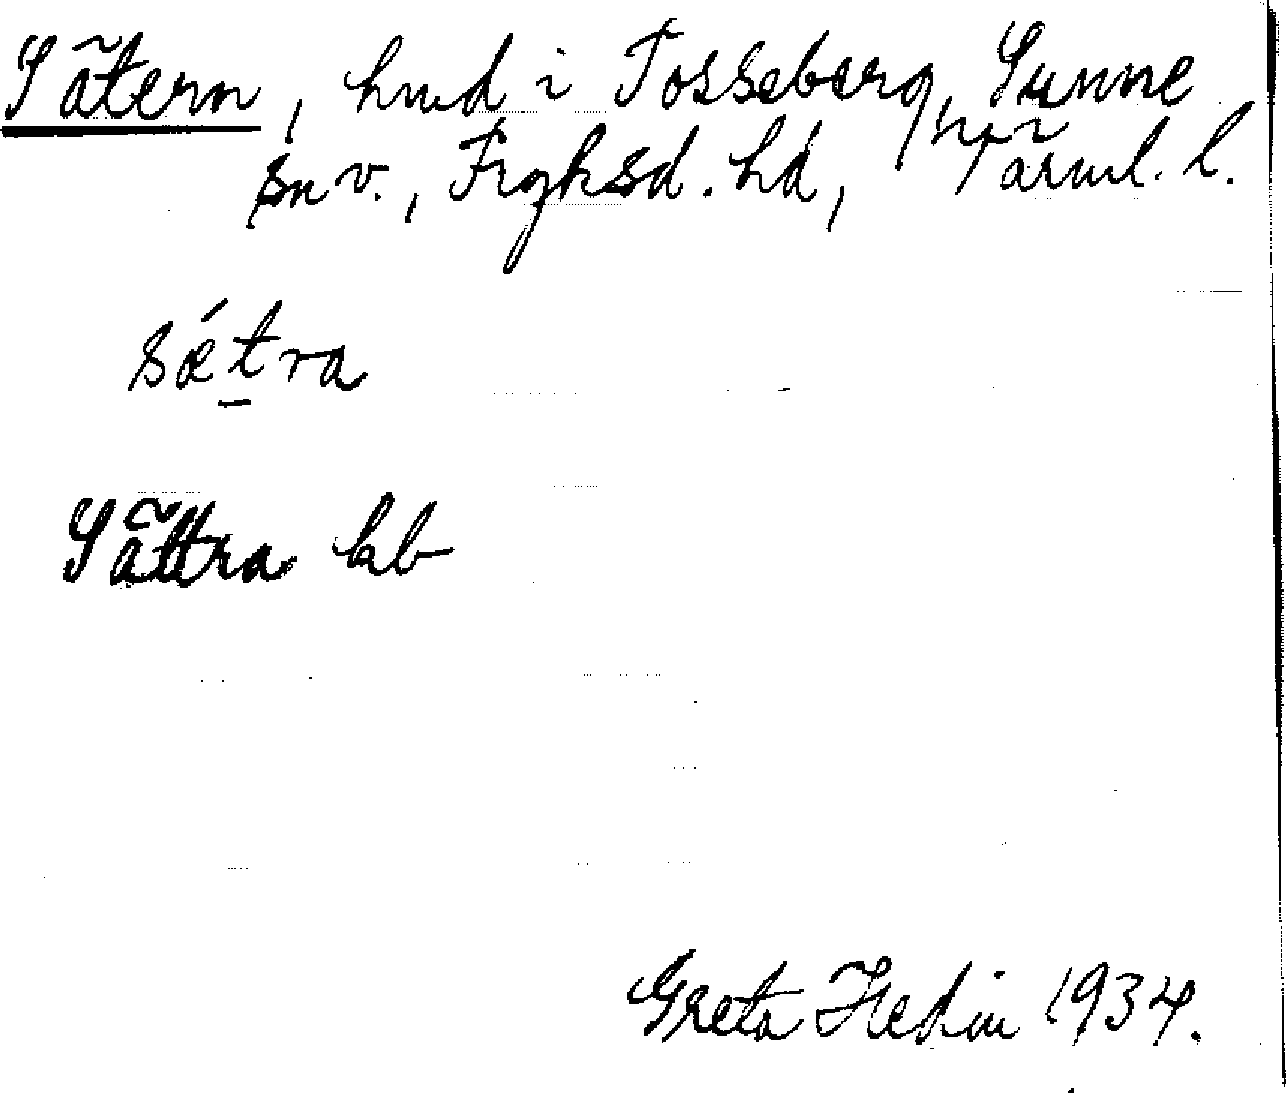 Sätern, hmd i Tosseberg, Sunne
sn v., Fryksd. hd, Värml. l.
sǽt̲ra
Sättra kb
Greta Hedin 1934.